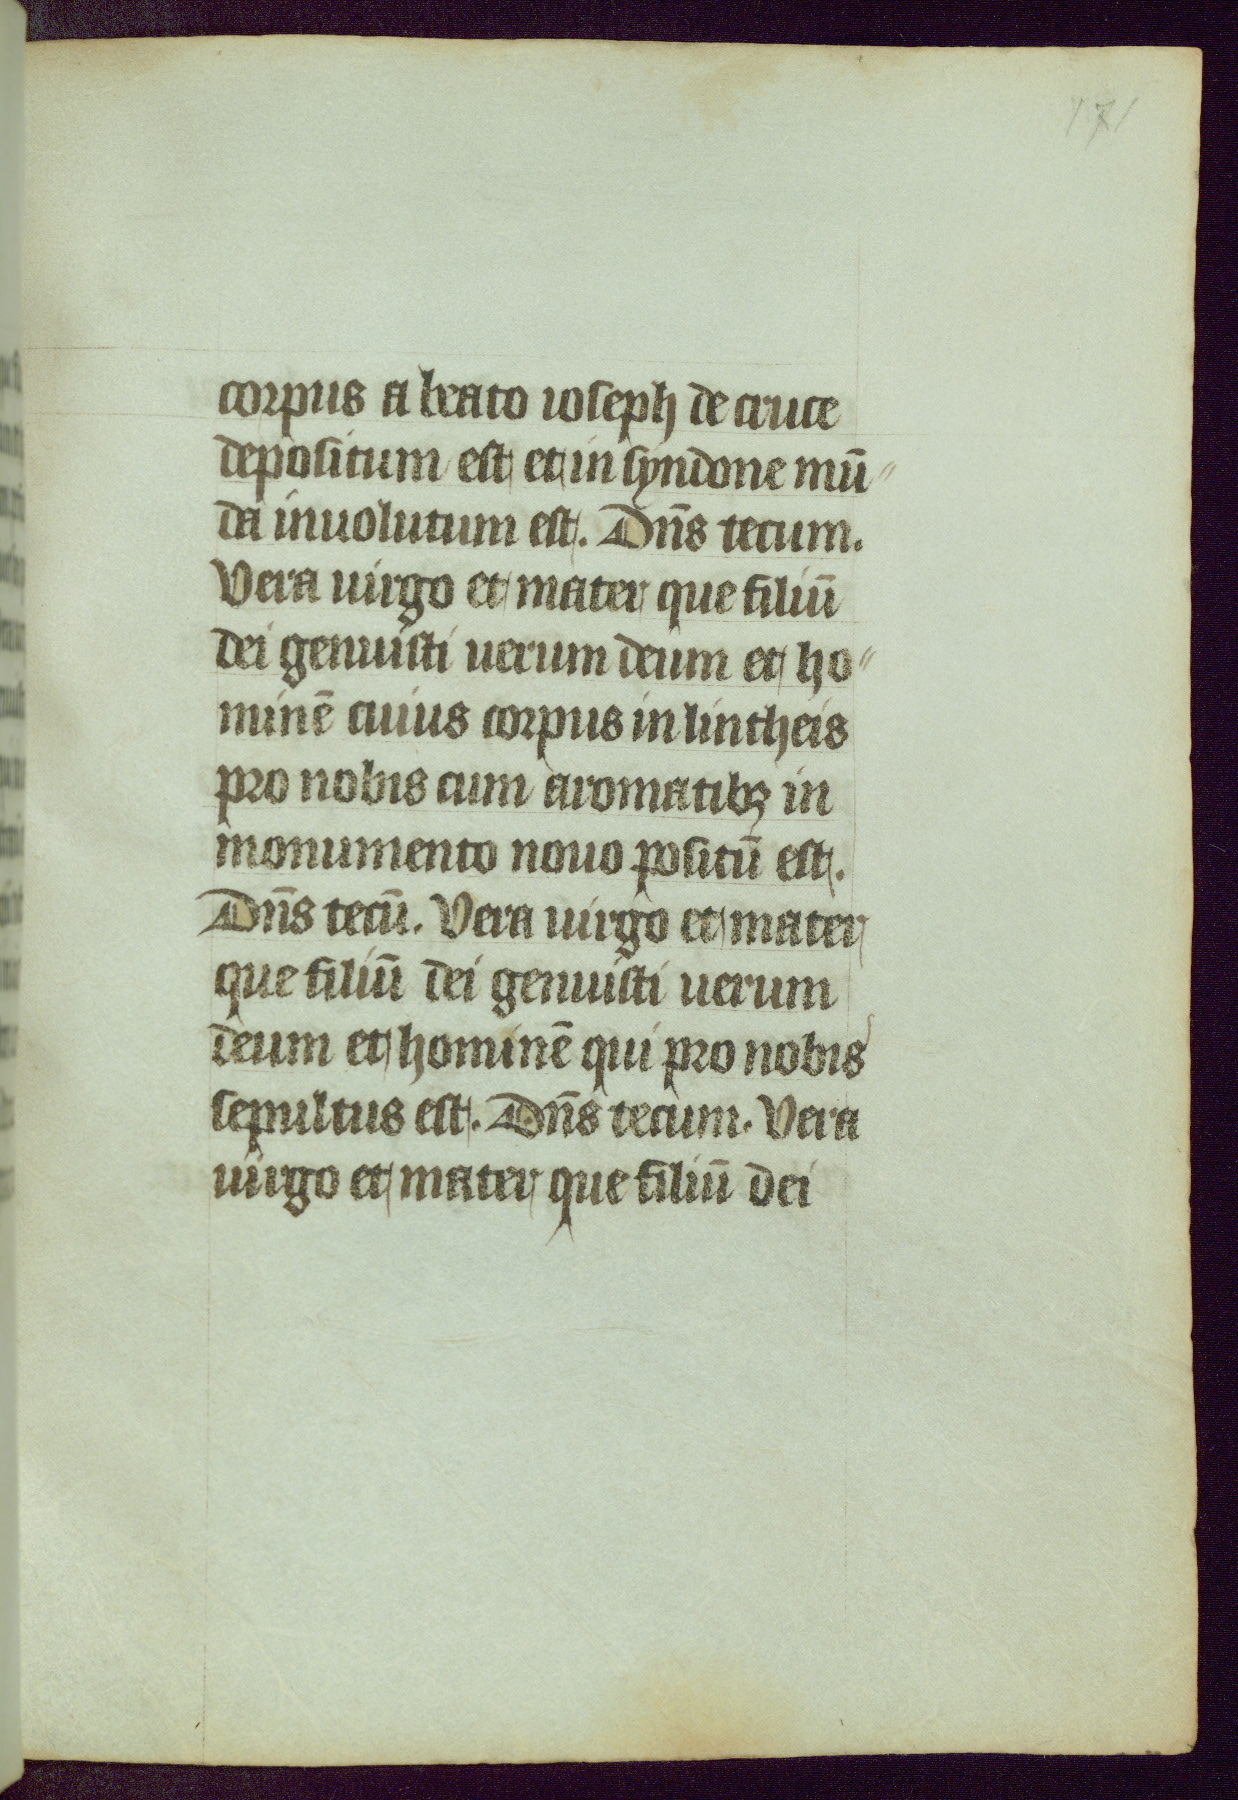 171
corpus a beato ioseph de cruce
depositum est et in syndone mū〃
da inuolutum est. Dn̄s tecum.
Vera uirgo et mater que filiū
dei genuisti uerum deum et ho〃
minē cuius corpus in lintheis
pro nobis cum aromatibꝫ in
monumento nouo positū est.
Dn̄s tecū. Vera uirgo et mater
que filiū dei genuisti uerum
deum et hominē qui pro nobis
sepultus est. Dn̄s tecum. Vera
uirgo et mater que filiū dei